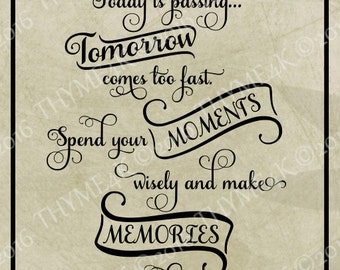 Today is passing...
Tomorrow
comes too fast.
Spend your MOMENTS
wisely and make
MEMORIES